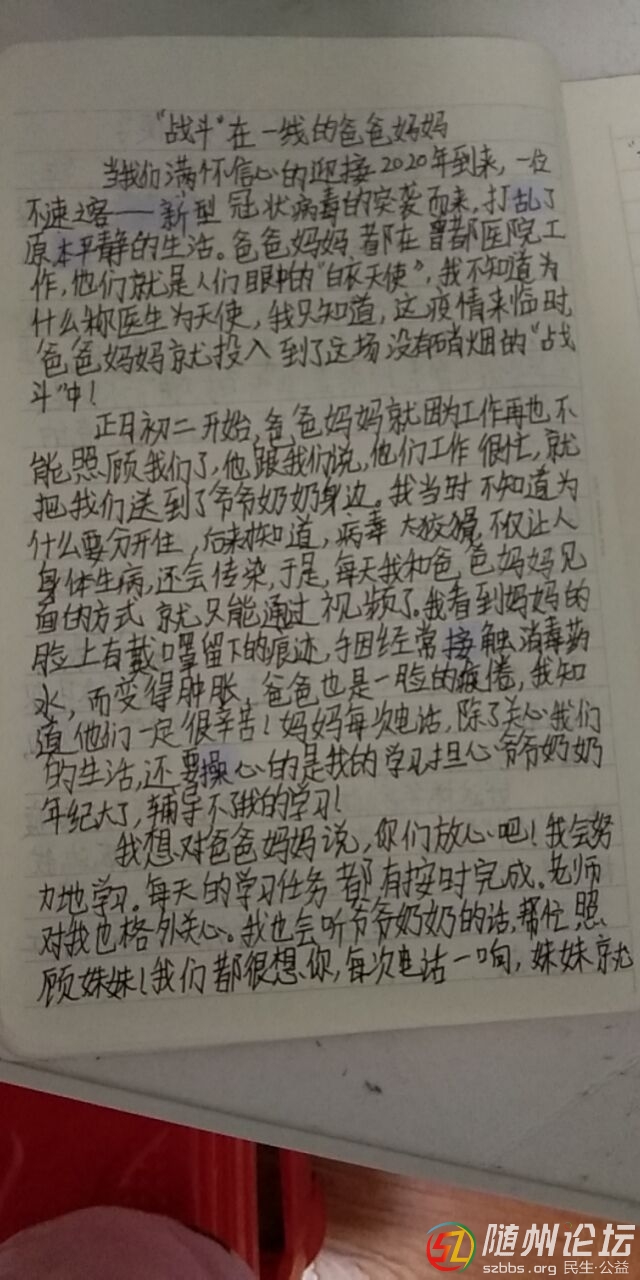 “战斗”在一线的爸爸妈妈
当我们满怀信心的迎接2020年到来，一位
不速之客——新型冠状病毒的突袭而来，打乱了
原本平静的生活。爸爸妈妈都在曾都医院工
作，他们就是人们眼中的“白衣天使”，我不知道为
什么称医生为天使，我只知道，这疫情来临时，
爸爸妈妈就投入到了这场没有硝烟的“战
斗”中！
正月初二开始，爸爸妈妈就因为工作再也不
能照顾我们了，他跟我们说，他们工作很忙，就
把我们送到了爷爷奶奶身边。我当时不知道为
什么要分开住，后来才知道，病毒太狡猾，不仅让人
身体生病，还会传染，于是，每天我和爸爸妈妈见
面的方式就只能通过视频了。我看到妈妈的
脸上有戴口罩留下的痕迹，手因经常接触消毒药
水，而变得肿胀，爸爸也是一脸的疲倦，我知
道他们一定很辛苦！妈妈每次电话，除了关心我们
的生活，还要操心的是我的学习，担心爷爷奶奶
年纪大了，辅导不了我的学习！
我想对爸爸妈妈说，你们放心吧！我会努
力地学习。每天的学习任务都有按时完成。老师
对我也格外关心。我也会听爷爷奶奶的话，帮忙照
顾妹妹！我们都很想你，每次电话一响，妹妹就
随州论坛
szbbs.org 民生·公益